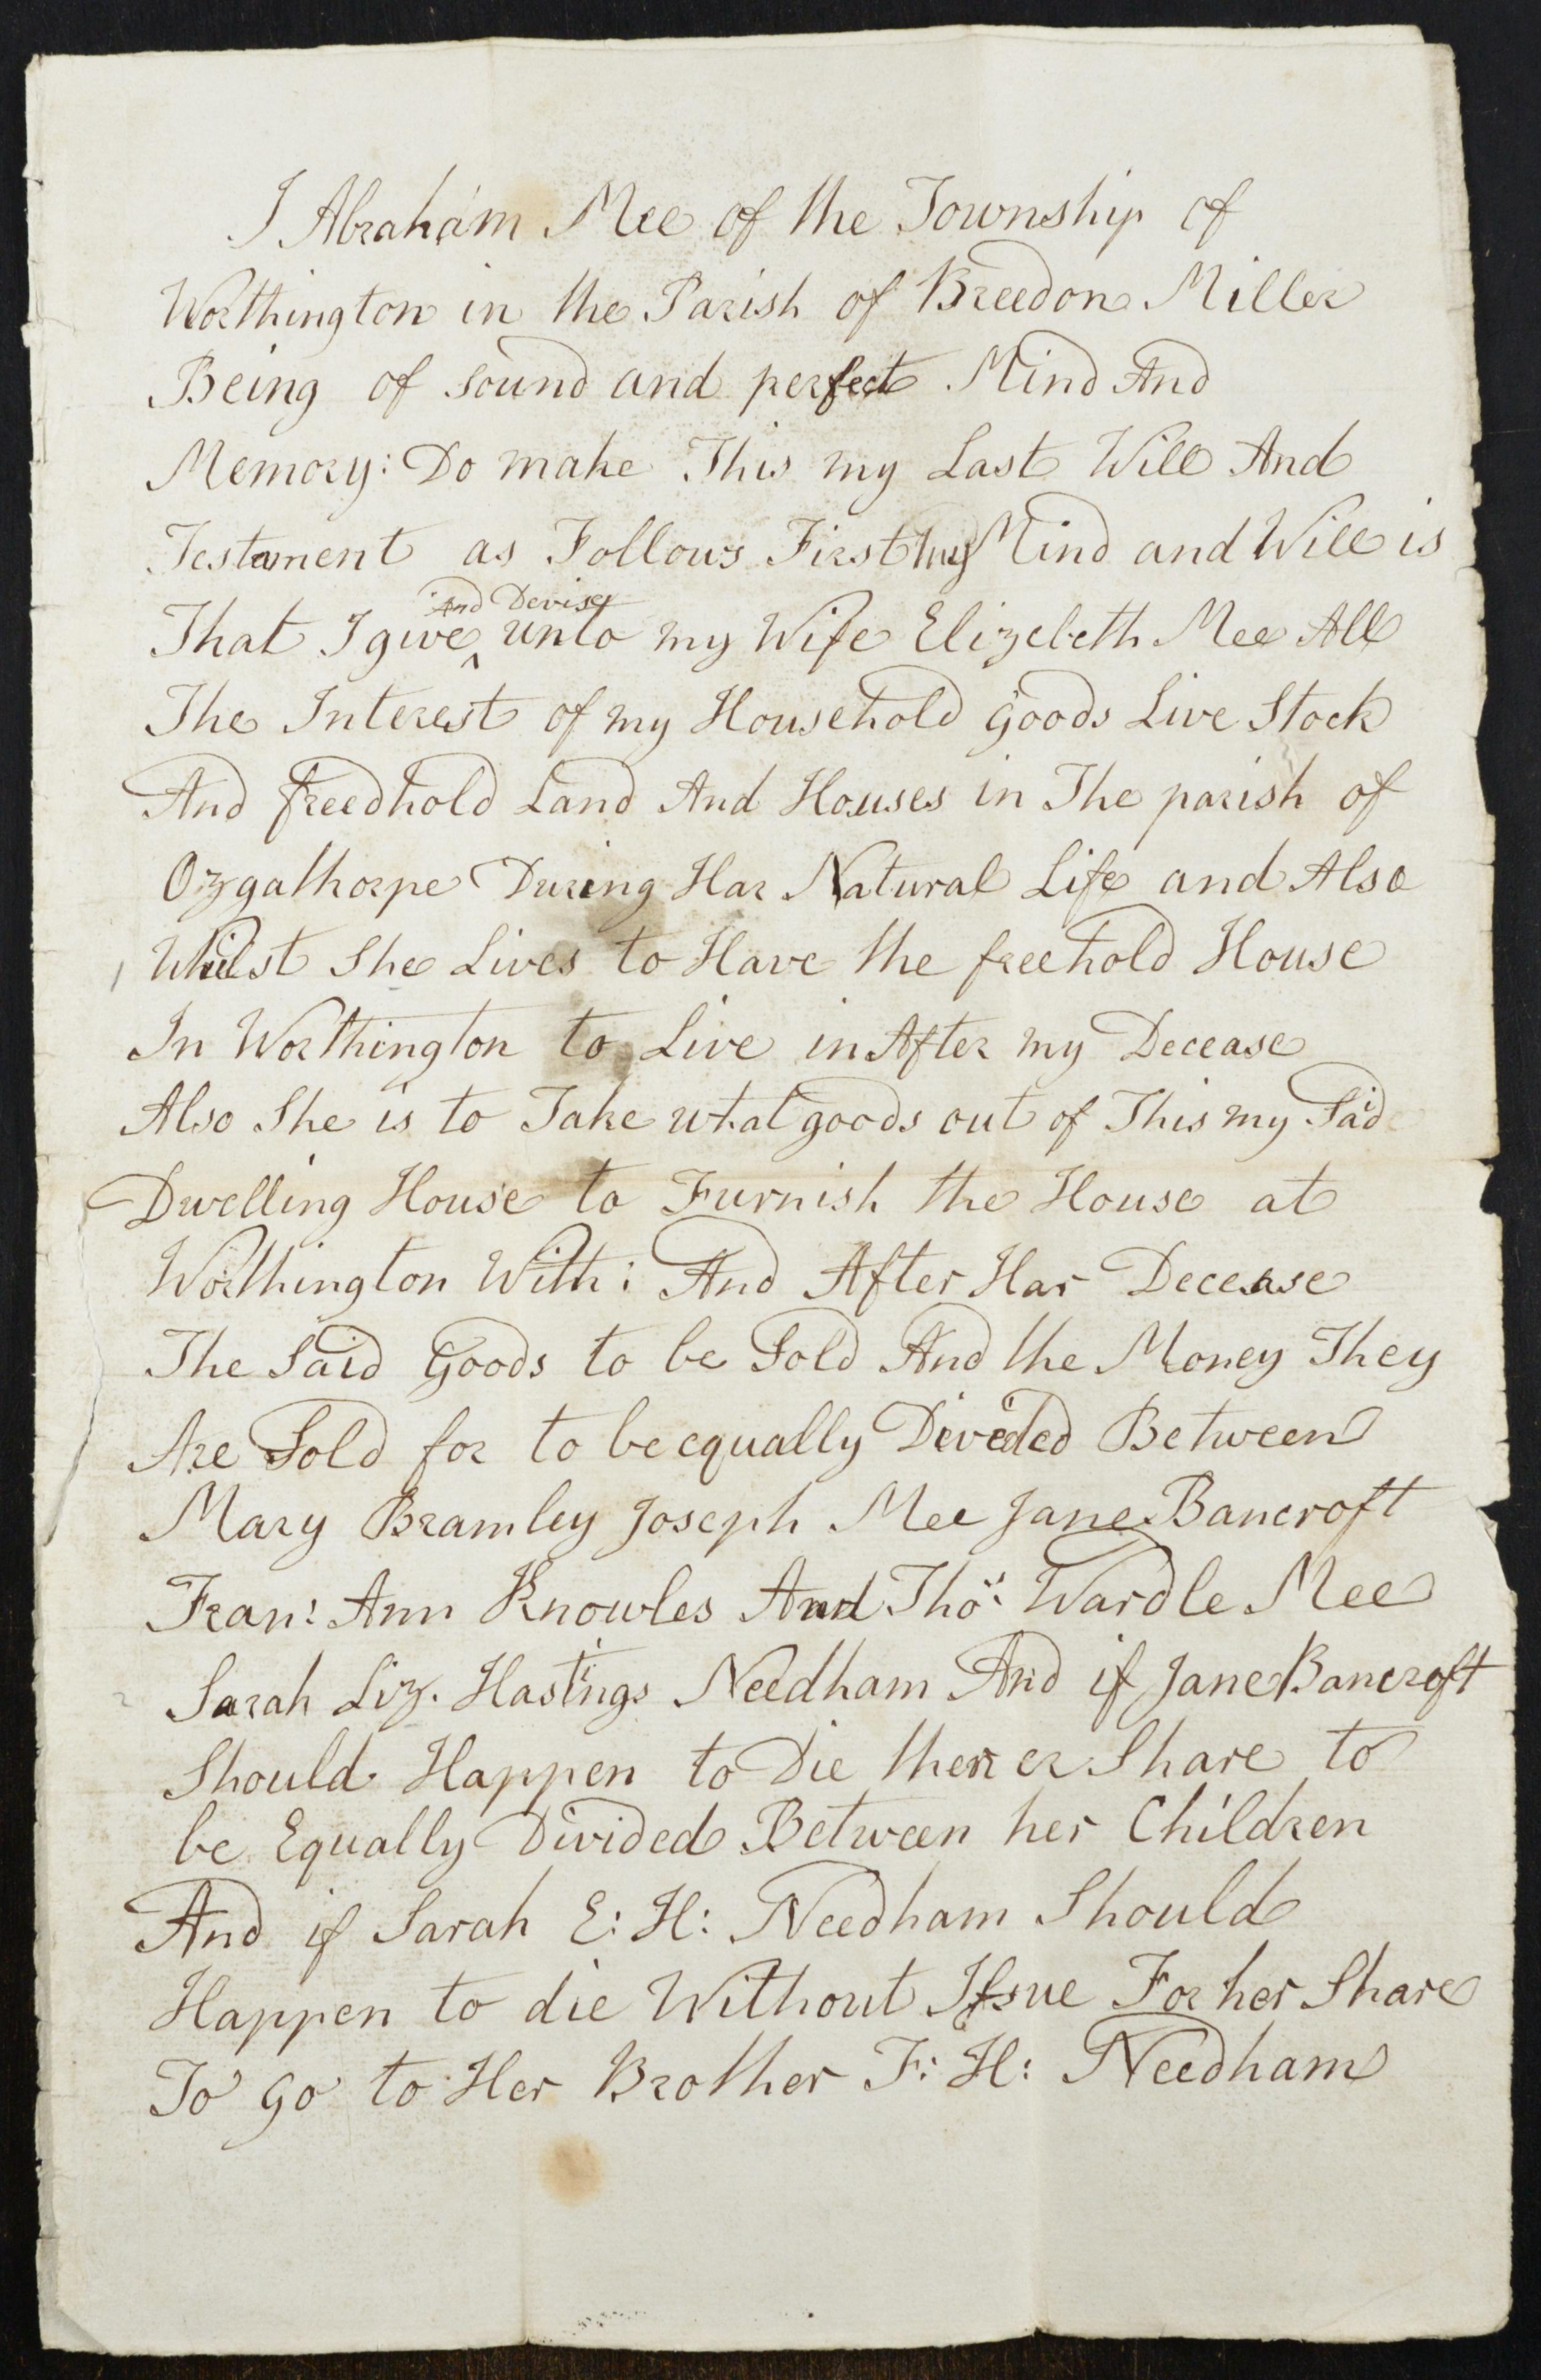 I Abraham Mee of the Township of
Worthington in the Parish of Breedon Miller
Being of sound and perfect Mind And
Memory: Do make This my Last Will And
Testament as Follows First my Mind and Will is
And Devise
That I give ^ unto my Wife Elizebeth Mee All
The Interest of my Household goods Live Stock
And freedhold Land And Houses in The parish of
Ozgathorpe During Har Natural Life and Also
Whilst She Lives to Have the freehold House
In Worthington to Live in After my Decease
Also She is to Take what goods out of This my Said
Dwelling House to Furnish the House at
Worthington With: And After Har Decease
The Said Goods to be Sold And the Money They
Are Sold for to be equally Divided Between
Mary Bramley Joseph Mee Jane Bancroft
Fran: Ann Knowles And Tho: Wardle Mee
Sarah Liz. Hastings Needham And if Jane Bancroft
Should Happen to Die then er Share to
be Equally Divided Between her Children
And if Sarah E: H: Needham Should
Happen to die Without Issue For her Share
To go to Her Brother F: H: Needham